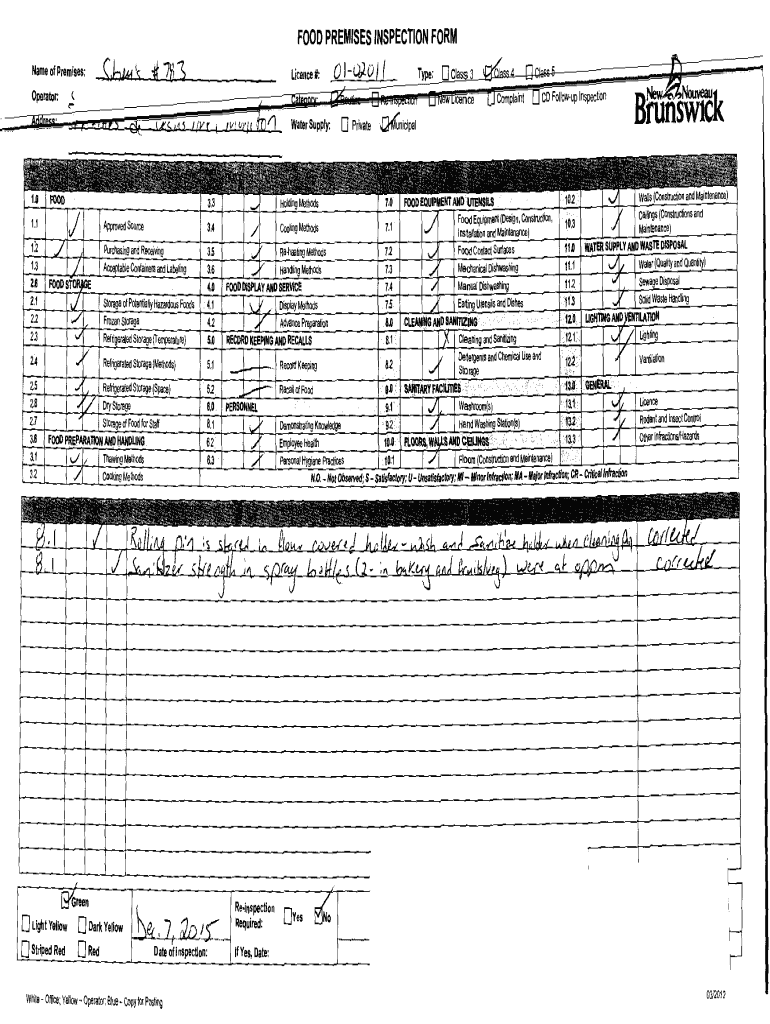 FOOD PREMISES INSPECTION FORM
Name of Premises: # 783 Licence #: 01-02011 Type: Class 3 Class 4 Class 5
Operator: Category: Routine Re-inspection New Licence Complaint CD Follow-up Inspection
Address: Water Supply: Private Municipal
New Nouveau
Brunswick
1.0 FOOD
1.1 Approved Source
1.2 Purchasing and Receiving
1.3 Acceptable Containers and Labeling
2.0 FOOD STORAGE
2.1 Storage of Potentially Hazardous Foods
2.2 Frozen Storage
2.3 Refrigerated Storage (Temperature)
2.4 Refrigerated Storage (Methods)
2.5 Refrigerated Storage (Space)
2.6 Dry Storage
2.7 Storage of Food for Staff
3.0 FOOD PREPARATION AND HANDLING
3.1 Thawing Methods
3.2 Cooking Methods
3.3 Holding Methods
3.4 Cooling Methods
3.5 Re-heating Methods
3.6 Handling Methods
4.0 FOOD DISPLAY AND SERVICE
4.1 Display Methods
4.2 Advance Preparation
5.0 RECORD KEEPING AND RECALLS
5.1 Record Keeping
5.2 Recall of Food
6.0 PERSONNEL
6.1 Demonstrating Knowledge
6.2 Employee Health
6.3 Personal Hygiene Practices
7.0 FOOD EQUIPMENT AND UTENSILS
7.1 Food Equipment (Design, Construction,
Installation and Maintenance)
7.2 Food Contact Surfaces
7.3 Mechanical Dishwashing
7.4 Manual Dishwashing
7.5 Eating Utensils and Dishes
8.0 CLEANING AND SANITIZING
8.1 Cleaning and Sanitizing
8.2 Detergents and Chemical Use and
Storage
9.0 SANITARY FACILITIES
9.1 Washroom(s)
9.2 Hand Washing Station(s)
10.0 FLOORS, WALLS AND CEILINGS
10.1 Floors (Construction and Maintenance)
10.2 Walls (Construction and Maintenance)
10.3 Ceilings (Constructions and
Maintenance)
11.0 WATER SUPPLY AND WASTE DISPOSAL
11.1 Water (Quality and Quantity)
11.2 Sewage Disposal
11.3 Solid Waste Handling
12.0 LIGHTING AND VENTILATION
12.1 Lighting
12.2 Ventilation
13.0 GENERAL
13.1 Licence
13.2 Rodent and Insect Control
13.3 Other Infractions/Hazards
N.O. – Not Observed; S – Satisfactory; U – Unsatisfactory; MI – Minor Infraction; MA – Major Infraction; CR – Critical Infraction
8.1 Rolling pin is stored in flour covered holder - wash and sanitize holder when cleaning pin corrected
8.1 Sanitizer strength in spray bottles (2 - in bakery and fruits/veg) were at 0ppm corrected
Green
Light Yellow Dark Yellow
Striped Red Red
Dec. 7, 2015
Date of inspection:
Re-inspection
Required: Yes No
If Yes, Date:
White – Office; Yellow – Operator; Blue – Copy for Posting
03/2012